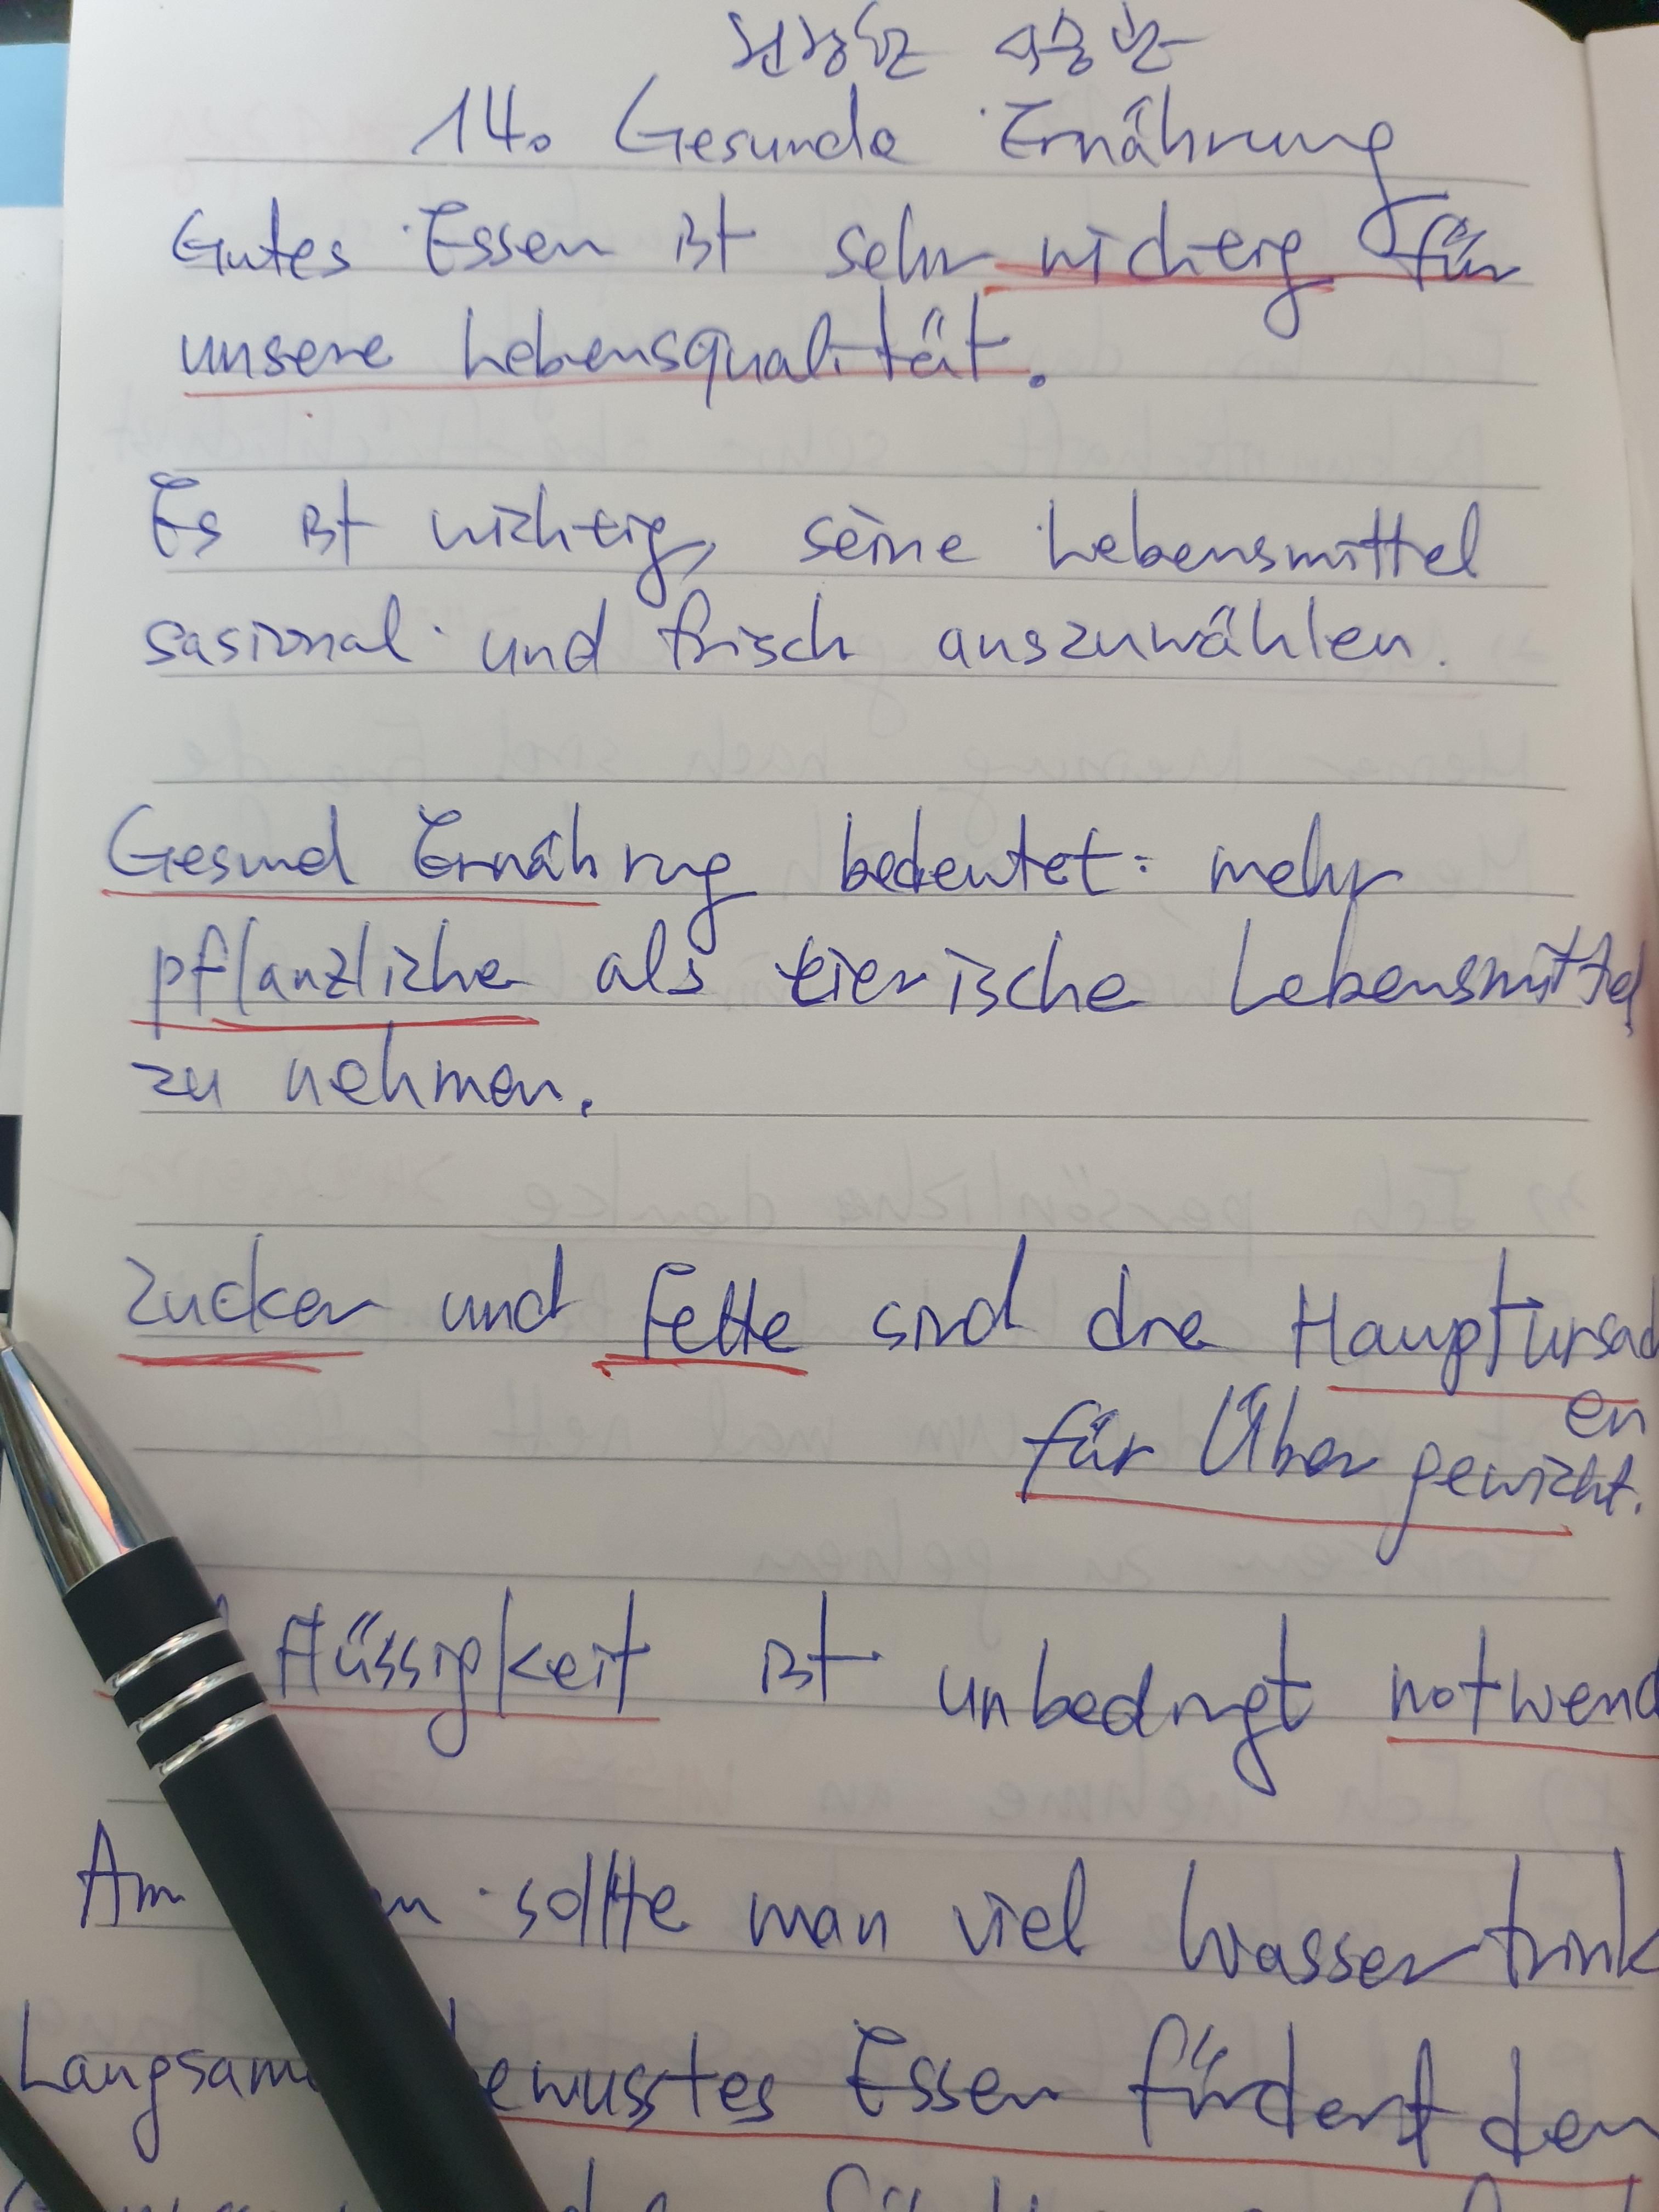 14. Gesunde Ernährung
Gutes Essen ist sehr wichtig für
unsere Lebensqualität.
Es ist wichtig, seine Lebensmittel
sasional und frisch auszuwählen.
Gesund Ernährung bedeutet: mehr
pflanzliche als tierische Lebensmittel
zu nehmen.
Zucker und Fette sind die Hauptursach
en
für Übergewicht.
Flüssigkeit ist unbedingt notwend
Am sollte man viel Wasser trink
Langsam bewusstes Essen fördert den